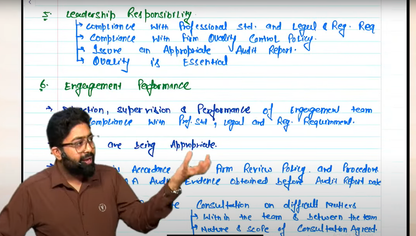 5. Leadership Responsibility
Compliance with Professional Std. and Legal & Reg. Req
Compliance with Firm Quality Control Policy.
Issue an Appropriate Audit Report.
Quality is Essential
6. Engagement Performance
supervision & Performance of Engagement team
Compliance with Prof. Std, Legal and Reg. Requirement.
are being Appropriate.
in Accordance Firm Review Policy and Procedure
A Audit Evidence obtained before Audit Report date
Consultation on difficult Matters
Within the team & between the team
Nature & scope of Consultation Agreed